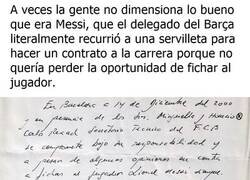 A veces la gente no dimensiona lo bueno
que era Messi, que el delegado del Barça
literalmente recurrió a una servilleta para
hacer un contrato a la carrera porque no
quería perder la oportunidad de fichar al
jugador.
En Barcelona, a 14 de diciembre del 2000
y en presencia de los Srs. Minguella y Horacio
Carles Rexach Secretario Técnico del F.C.B
se compromete bajo su responsabilidad y
a pesar de algunas opiniones en contra
a fichar al jugador Lionel Messi siempre